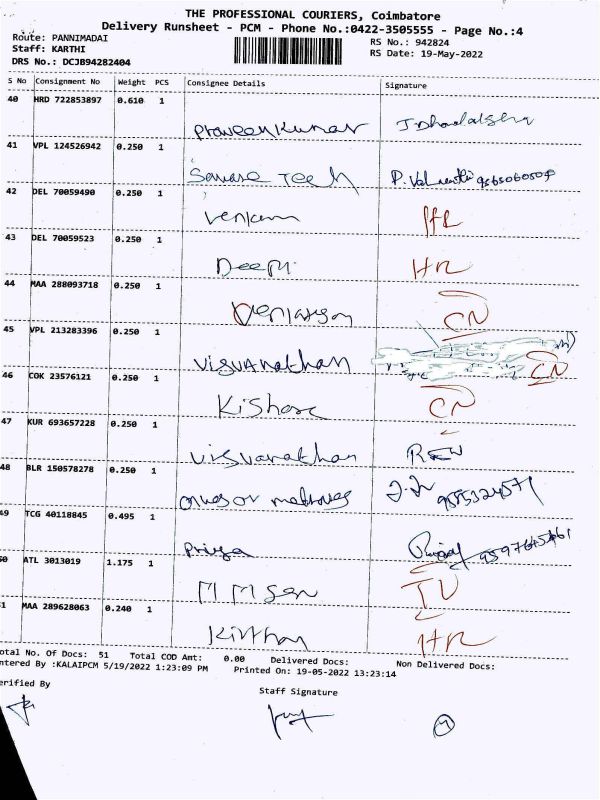 THE PROFESSIONAL COURIERS, Coimbatore
Delivery Runsheet - PCM - Phone No.:0422-3505555 - Page No.:4
Route: PANNIMADAI
RS No.: 942824
Staff: KARTHI
RS Date: 19-May-2022
DRS No.: DCJB94282404
S No Consignment No Weight PCS Consignee Details Signature
40 HRD 722853897 0.610 1
Praveenkumar
41 VPL 124526942 0.250 1
Square Tech
42 DEL 70059490 0.250 1
Venkam HR
43 DEL 70059523 0.250 1
Deepti HR
44 MAA 288093718 0.250 1
Venkatesan CN
45 VPL 213283396 0.250 1
Visvanathan CN
46 COK 23576121 0.250 1
Kishore CN
47 KUR 693657228 0.250 1
Visvanathan
48 BLR 150578278 0.250 1
49 TCG 40118845 0.495 1
Priya
50 ATL 3013019 1.175 1
M M Sen
51 MAA 289628063 0.240 1
HR
Total No. Of Docs: 51 Total COD Amt: 0.00 Delivered Docs: Non Delivered Docs:
Entered By :KALAIPCM 5/19/2022 1:23:09 PM Printed On: 19-05-2022 13:23:14
Verified By
Staff Signature